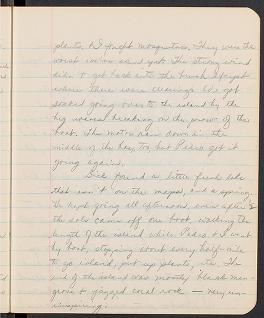 plants, & I fought mosquitoes. They were the
worst we've seen yet. The strong wind
didn't get back into the brush except
where there were clearings. We got
soaked going over to the island by the
big waves breaking on the prow of the
boat. The motor ran down in the
middle of the bay, too, but Pedro got it
going again.
Dick found a little fresh lake
that isn't on the maps, and a spring.
He kept going all afternoon, even after
the sole came off one boot, walking the
length of the island while Pedro & I went
by boat, stopping about every half-mile
to go inland, put up plants, etc. The
end of the island was mostly black man-
grove & jagged coral rock — very un-
inspiring.